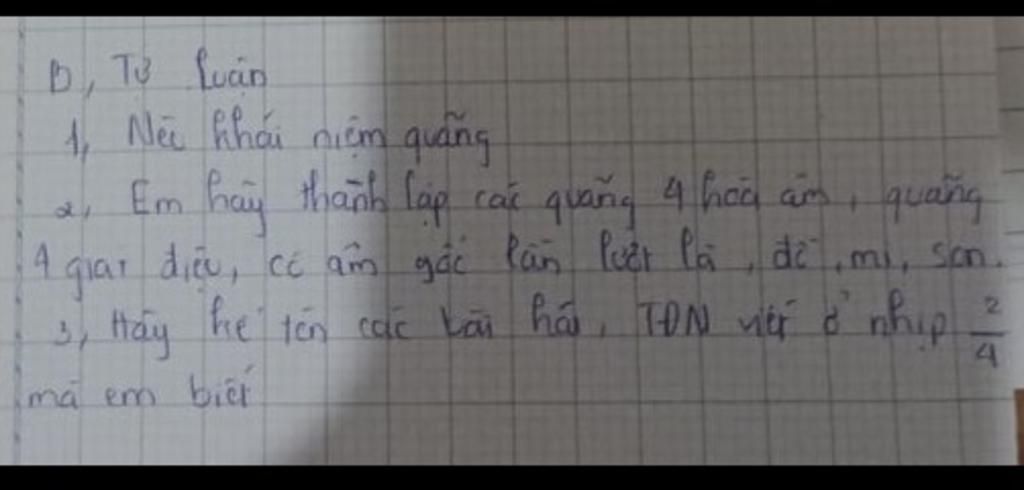 B, Tự luận
1, Nêu khái niệm quãng
2, Em hãy thành lập các quãng 4 hoà âm, quãng
4 giai điệu, có âm gốc lần lượt là, đô, mi, son.
3, Hãy kể tên các bài hát, TĐN viết ở nhịp 2/4
mà em biết